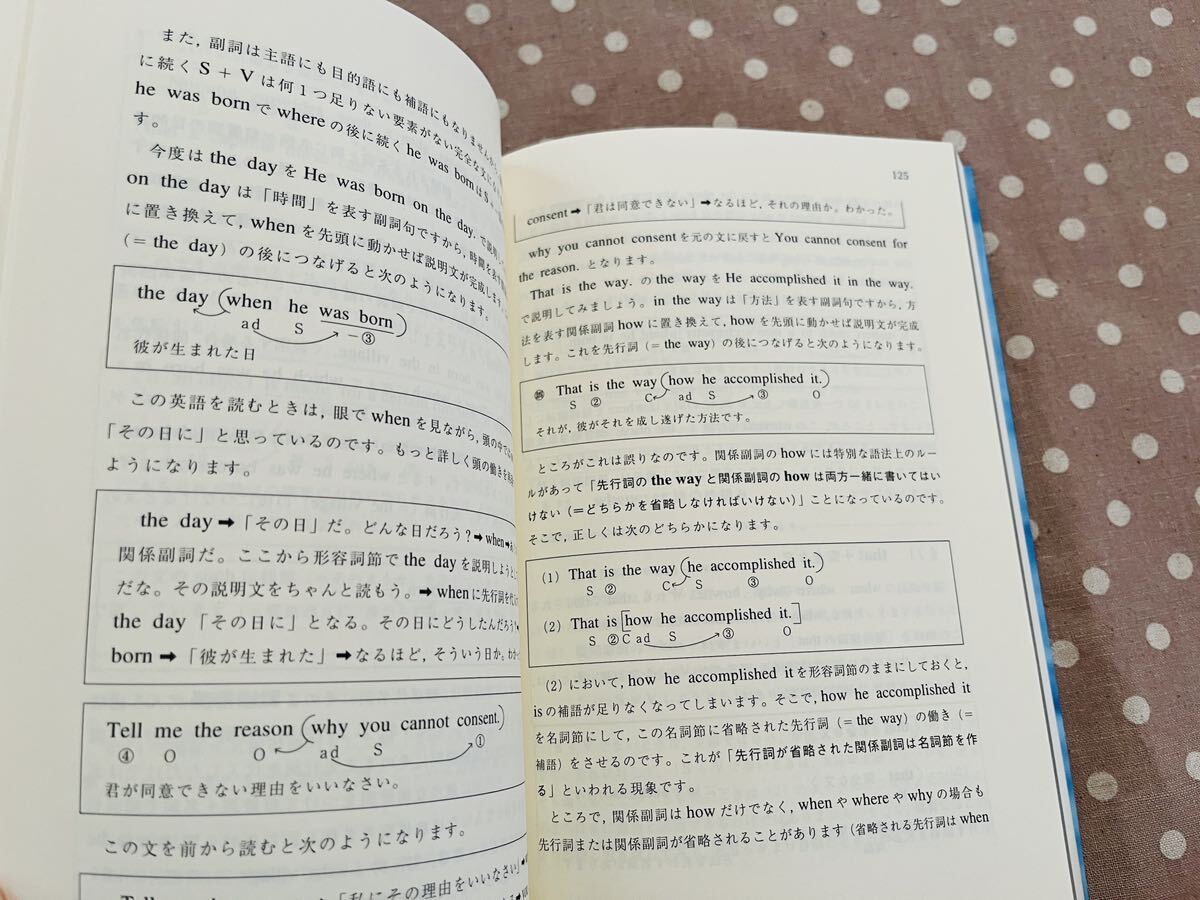 また，副詞は主語にも目的語にも補語にもなりません
に続く S + V は何1つ足りない要素がない完全な文に
he was born で where の後に続く he was born は S +
す。
今度は the day を He was born on the day. で説明し
on the day は「時間」を表す副詞句ですから，時間を表す
に置き換えて，when を先頭に動かせば説明文が完成します。
（= the day）の後につなげると次のようになります。
the day (when he was born)
ad S －③
彼が生まれた日
この英語を読むときは，眼で when を見ながら，頭の中で
「その日に」と思っているのです。もっと詳しく頭の働きを
ようになります。
the day ➡「その日」だ。どんな日だろう？➡ when ➡
関係副詞だ。ここから形容詞節で the day を説明しよう
だな。その説明文をちゃんと読もう。➡ when に先行詞を代
the day「その日に」となる。その日にどうしたんだろう
born ➡「彼が生まれた」➡なるほど，そういう日か。わか
Tell me the reason (why you cannot consent.)
④ O O ad S ①
君が同意できない理由をいいなさい。
この文を前から読むと次のようになります。
「私にその理由をいいなさい」
125
consent ➡「君は同意できない」➡なるほど，それの理由か。わかった。
why you cannot consent を元の文に戻すと You cannot consent for
the reason. となります。
That is the way. の the way を He accomplished it in the way.
で説明してみましょう。in the way は「方法」を表す副詞句ですから，方
法を表す関係副詞 how に置き換えて，how を先頭に動かせば説明文が完成
します。これを先行詞（= the way）の後につなげると次のようになります。
That is the way (how he accomplished it.)
S ② C ad S ③ O
それが，彼がそれを成し遂げた方法です。
ところがこれは誤りなのです。関係副詞の how には特別な語法上のルー
ルがあって「先行詞の the way と関係副詞の how は両方一緒に書いてはい
けない（＝どちらかを省略しなければいけない）」ことになっているのです。
そこで，正しくは次のどちらかになります。
(1) That is the way (he accomplished it.)
S ② C S ③ O
(2) That is [how he accomplished it.]
S ② C ad S ③ O
(2) において，how he accomplished it を形容詞節のままにしておくと，
is の補語が足りなくなってしまいます。そこで，how he accomplished it
を名詞節にして，この名詞節に省略された先行詞（= the way）の働き（＝
補語）をさせるのです。これが「先行詞が省略された関係副詞は名詞節を作
る」といわれる現象です。
ところで，関係副詞は how だけでなく，when や where や why の場合も
先行詞または関係副詞が省略されることがあります（省略される先行詞は when